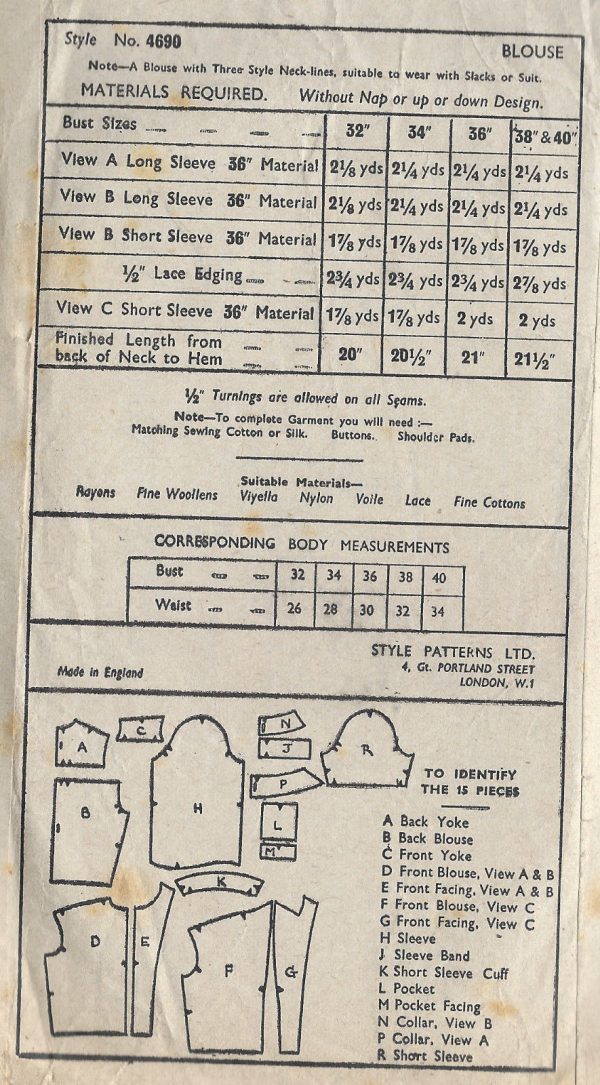 Style No. 4690
BLOUSE
Note—A Blouse with Three Style Neck-lines, suitable to wear with Slacks or Suit.
MATERIALS REQUIRED. Without Nap or up or down Design.
Bust Sizes 32" 34" 36" 38" & 40"
View A Long Sleeve 36" Material 2⅛ yds 2¼ yds 2¼ yds 2¼ yds
View B Long Sleeve 36" Material 2⅛ yds 2¼ yds 2¼ yds 2¼ yds
View B Short Sleeve 36" Material 1⅞ yds 1⅞ yds 1⅞ yds 1⅞ yds
½" Lace Edging 2¾ yds 2¾ yds 2¾ yds 2⅞ yds
View C Short Sleeve 36" Material 1⅞ yds 1⅞ yds 2 yds 2 yds
Finished Length from
back of Neck to Hem 20" 20½" 21" 21½"
½" Turnings are allowed on all Seams.
Note—To complete Garment you will need :—
Matching Sewing Cotton or Silk. Buttons. Shoulder Pads.
Suitable Materials—
Rayons Fine Woollens Viyella Nylon Voile Lace Fine Cottons
CORRESPONDING BODY MEASUREMENTS
Bust 32 34 36 38 40
Waist 26 28 30 32 34
STYLE PATTERNS LTD.
4, Gt. PORTLAND STREET
LONDON, W.1
Made in England
A
C
H
N
J
R
P
B
L
M
K
D
E
F
G
TO IDENTIFY
THE 15 PIECES
A Back Yoke
B Back Blouse
C Front Yoke
D Front Blouse, View A & B
E Front Facing, View A & B
F Front Blouse, View C
G Front Facing, View C
H Sleeve
J Sleeve Band
K Short Sleeve Cuff
L Pocket
M Pocket Facing
N Collar, View B
P Collar, View A
R Short Sleeve